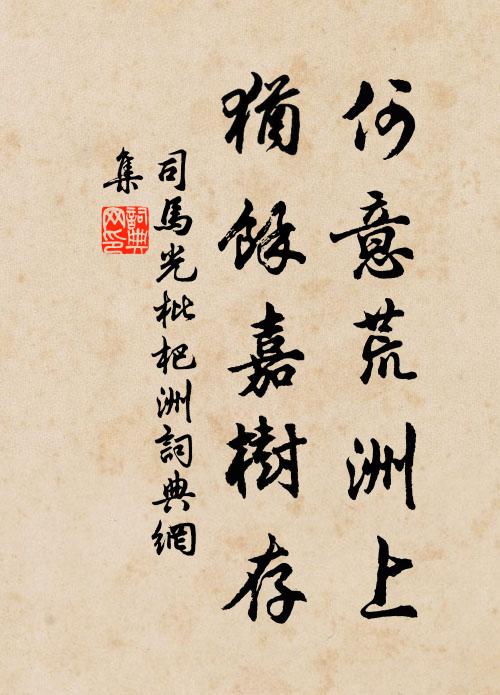 何意荒洲上
猶餘嘉樹存
司馬光枇杷洲詞典網
集
詞典
网印